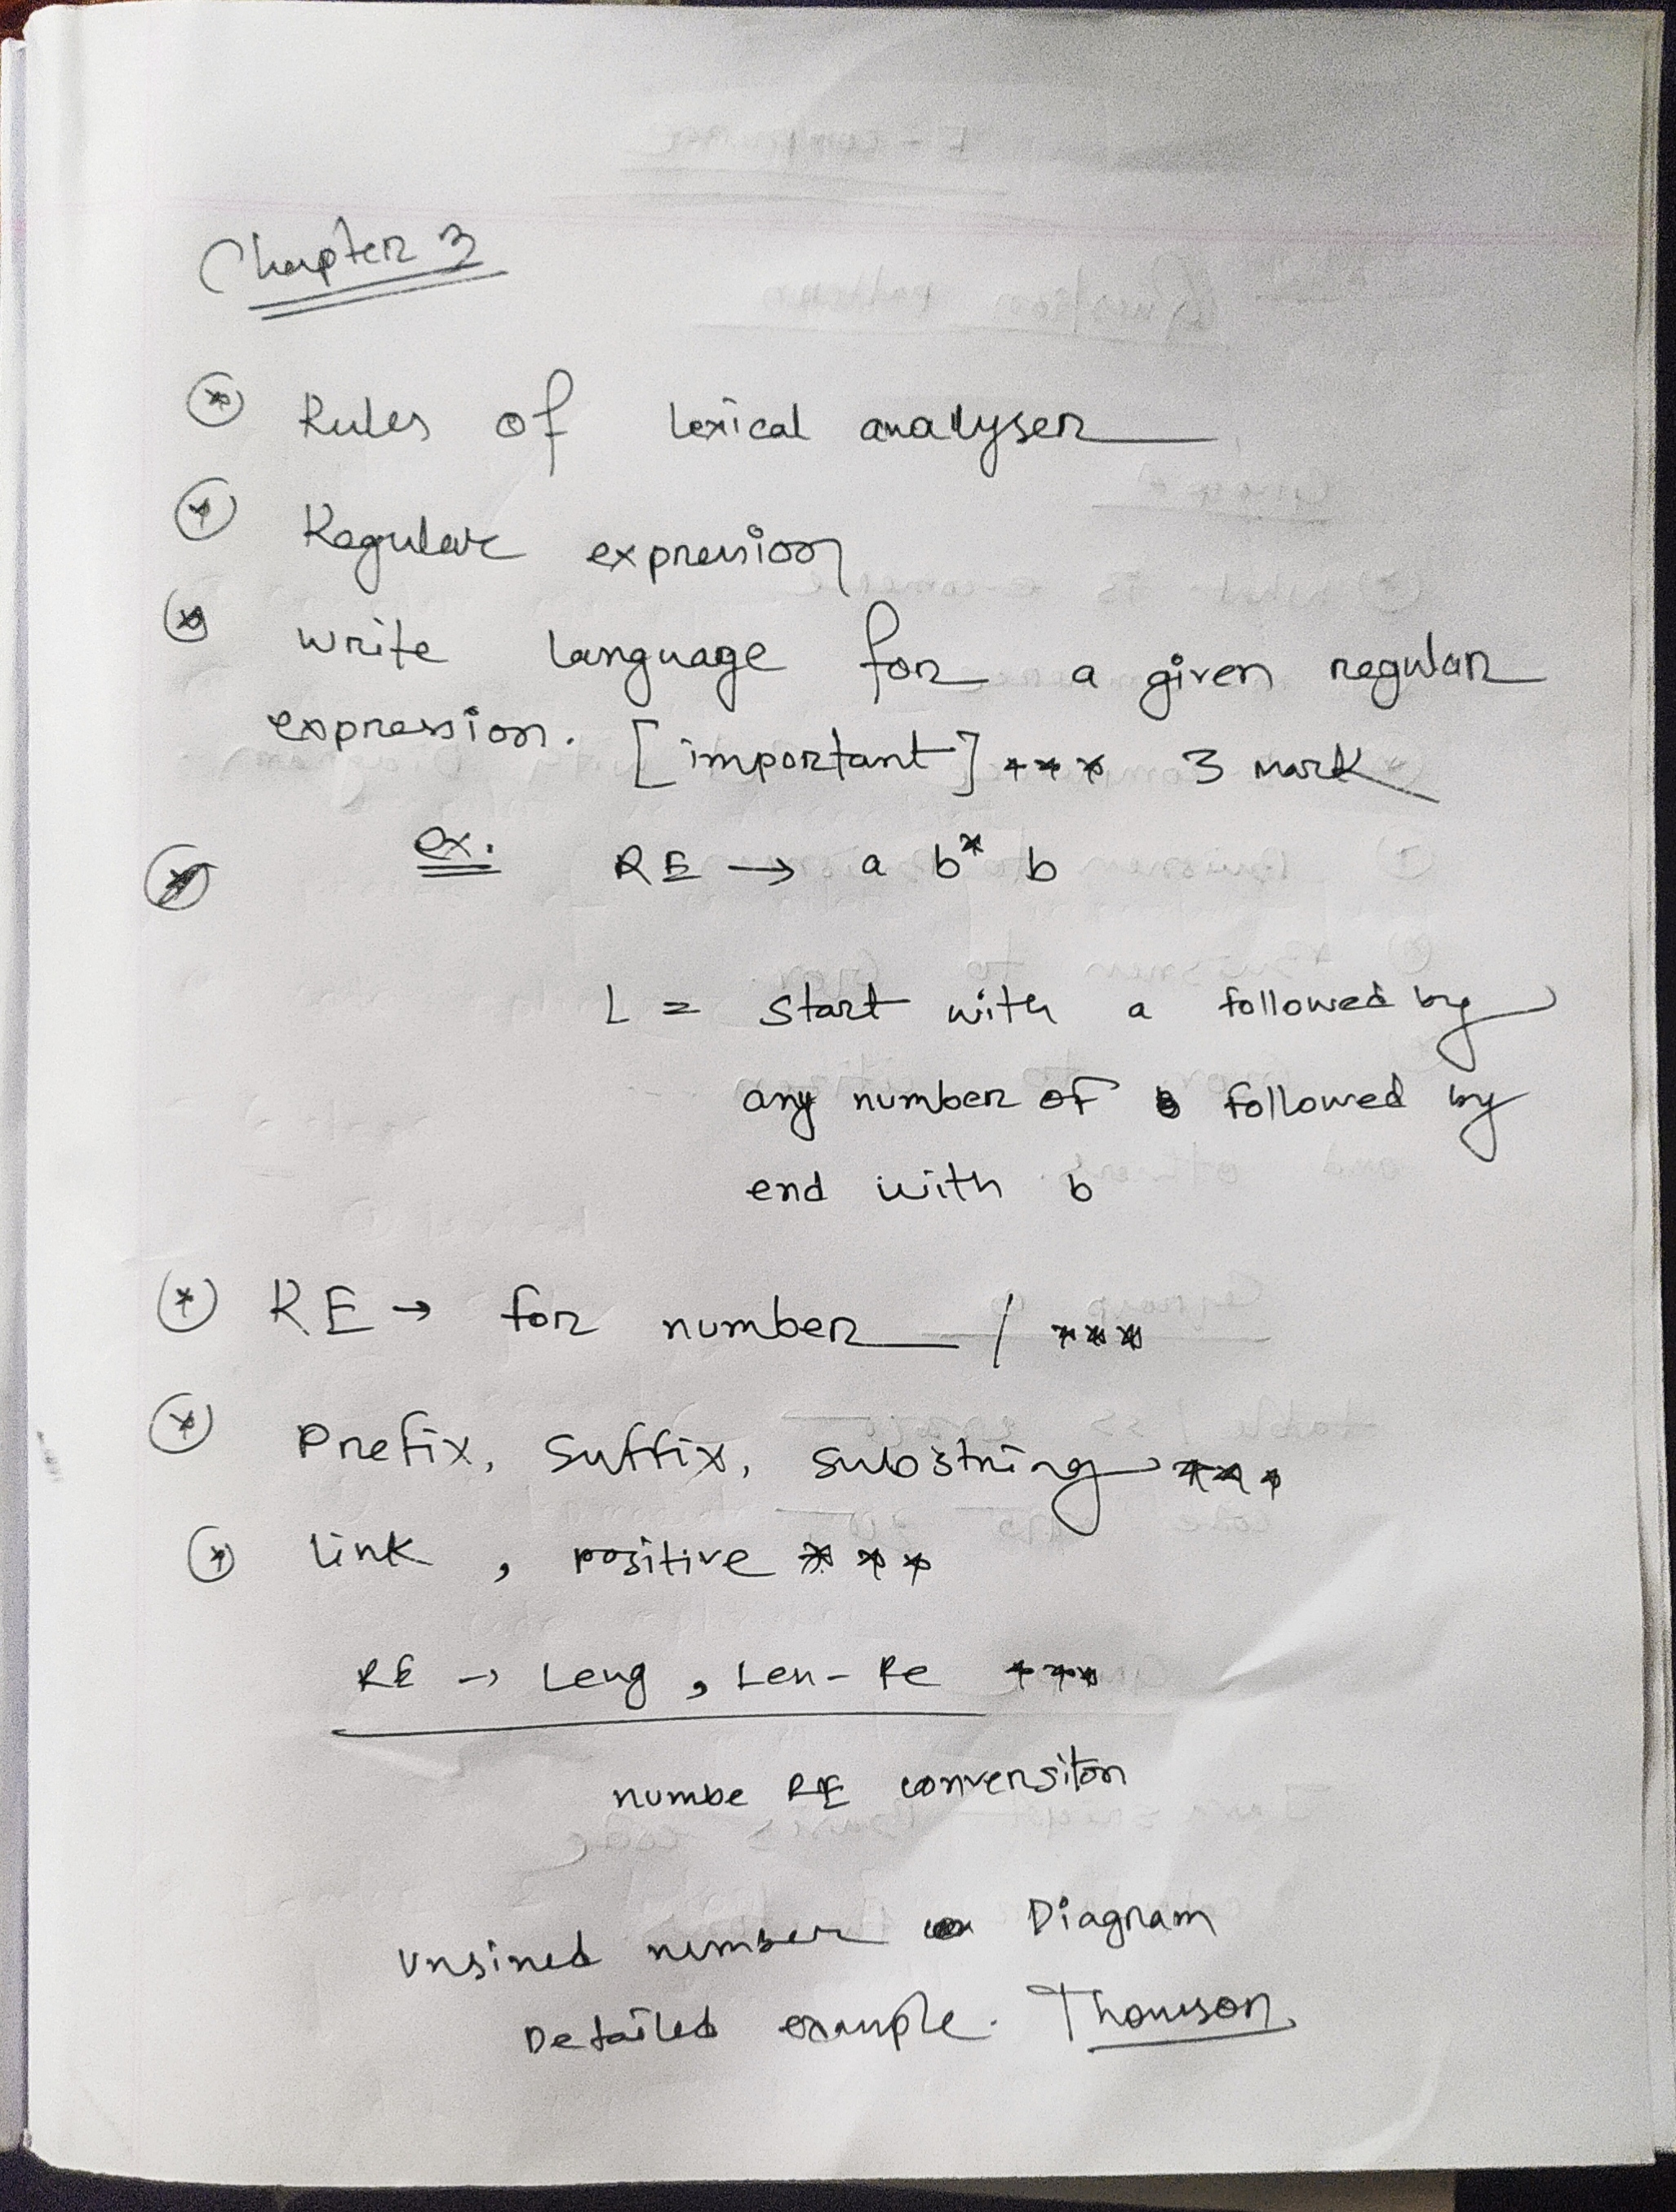 Chapter 3
Rules of lexical analyser
Regular expression
write language for a given regular
expression. [important] *** 3 mark
ex. RE → a b* b
L = start with a followed by
any number of b followed by
end with b
RE → for number / ***
Prefix, Suffix, substring ***
link, positive ***
RE → Leng, Len-Re ***
numbe RE conversiton
Unsined number Diagram
Detailed example. Thomson